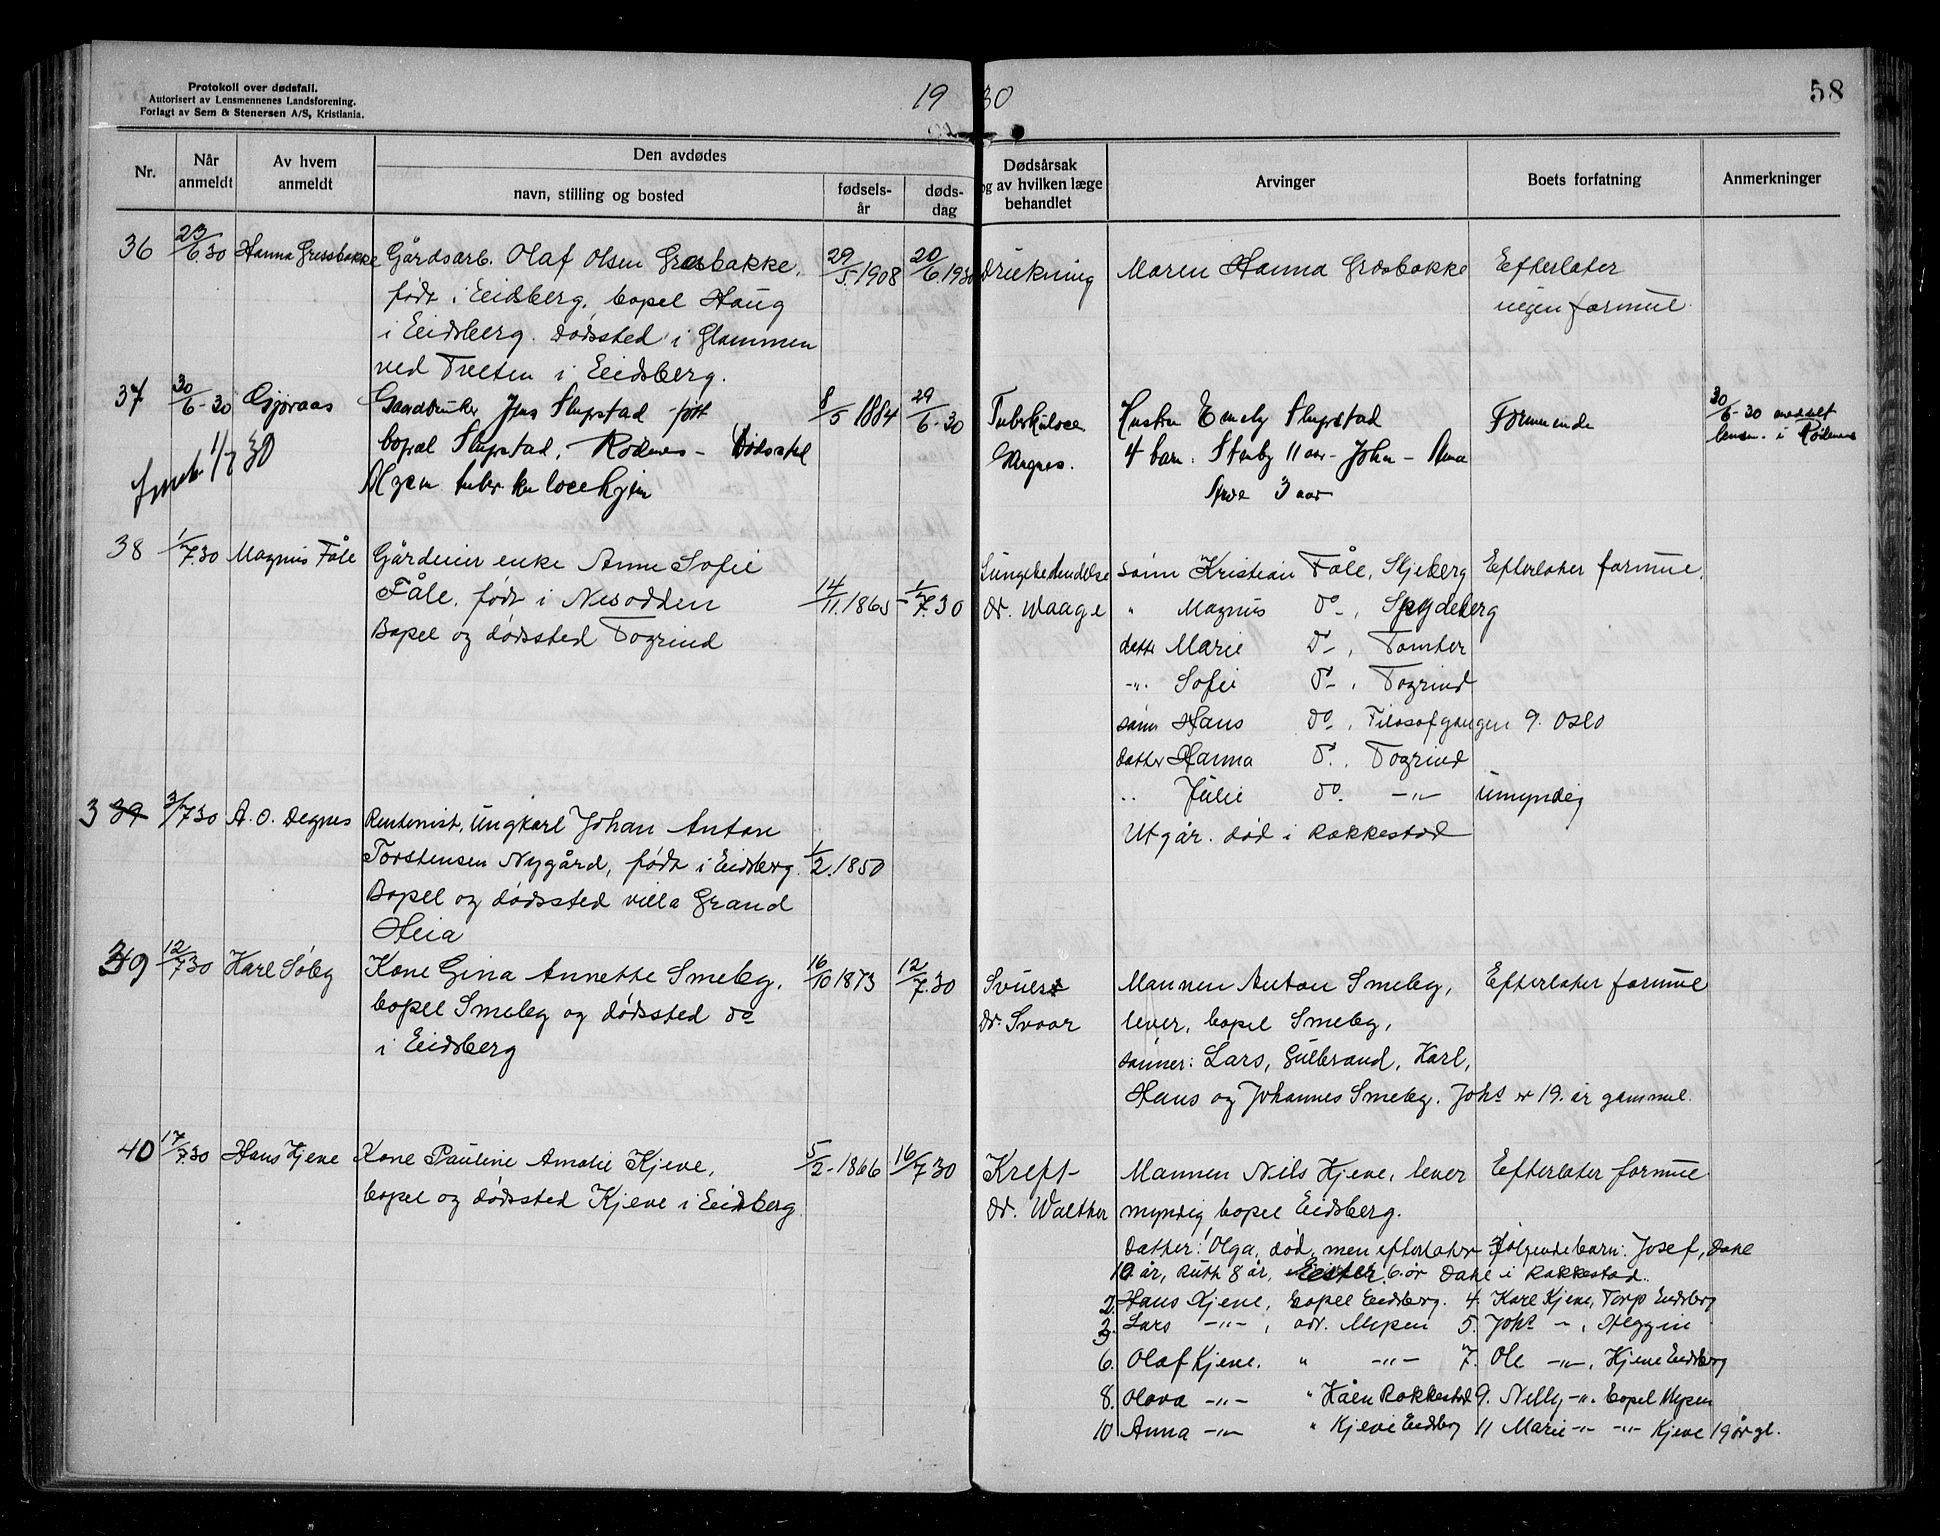 Protokoll over dødsfall.
Autorisert av Lensmennenes Landsforening.
Forlagt av Sem & Stenersen A/S, Kristiania.
19 30
58
Nr.
Når anmeldt
Av hvem anmeldt
Den avdødes
navn, stilling og bosted
fødsels-år
døds-dag
Dødsårsak og av hvilken læge behandlet
Arvinger
Boets forfatning
Anmerkninger
36 23/6.30 Hanna Gressbakke Gårdsarb. Olaf Olsen Gresbakke, 29/5.1908 20/6.1930 Drukning Maren Hanna Gresbakke Efterlater
født i Eidsberg, bopel Haug ingen formue.
i Eidsberg. Dødssted i Glommen
ved Tveten i Eidsberg.
37 30/6-30 Gjøraas Gaardbruker Jens Slupstad født 8/5 1884 29/6-30 Tuberkulose Hustru Emely Slupstad Formuende 30/6-30 meddelt
bopæl Slupstad, Rødenes - Dødssted 4 barn: 11 aar - John - lensm. i Rødenes
1/7 30 Mysen tuberkulosehjem 3 aar
38 1/7.30 Magnus Fåle Gårdeier enke Anne Sofie Lungebetendelse sønn Kristian Fåle, Skjeberg Efterlater formue.
Fåle, født i Nesodden 14/11.1865 1/7.30 Dr. Waage " Magnus do -, Spydeberg
Bopel og dødssted Togrind datt. Marie do -, Tomter
-"- Sofie do -, Togrind
sønn Hans do -, Filosofgangen 9. Oslo
datter Hanna do., Togrind
" Julie do. -"- umyndig
3 39 3/7 30 A. O. Degnes Rentenist, Ungkarl Johan Anton Utgår. død i Rakkestad
Torstensen Nygård, født i Eidsberg. 1/2.1850
Bopel og dødssted villa Grand
Heia
39 12/7 30 Karl Søby Kone Gina Annette Smeby, 16/10 1873 12/7.30 Mannen Anton Smeby, Efterlater formue
bopel Smeby og dødssted do Dr. Svaar lever, bopel Smeby,
i Eidsberg sønner: Lars, Gulbrand, Karl,
Hans og Johannes Smeby. Johs er 19. år gammel.
40 17/7.30 Hans Kjeve Kone Pauline Amalie Kjeve, 5/2-1866 16/7.30 Kreft- Mannen Nils Kjeve, lever Efterlater formue
bopel og dødssted Kjeve i Eidsberg. Dr. Walther myndig bopel Eidsberg.
Datter: Olga, død, men efterlater følgende barn: Josef, Dahl
10 år, Ruth 8 år, Ester 6. år Dahl i Rakkestad.
2. Hans Kjeve, bopel Eidsberg. 4. Karl Kjeve, Torp Eidsberg
3. Lars -"-, adr. Mysen 5. Johs -"-, Heggin
6. Olaf Kjeve. " -"- 7. Ole -"-, Kjeve Eidsberg
8. Olava -"- " Håen Rakkestad 9. Nelly -"- bopel Mysen
10 Anna -"- " Kjeve Eidsberg 11 Marie -"- -"- Kjeve 19 år gl.